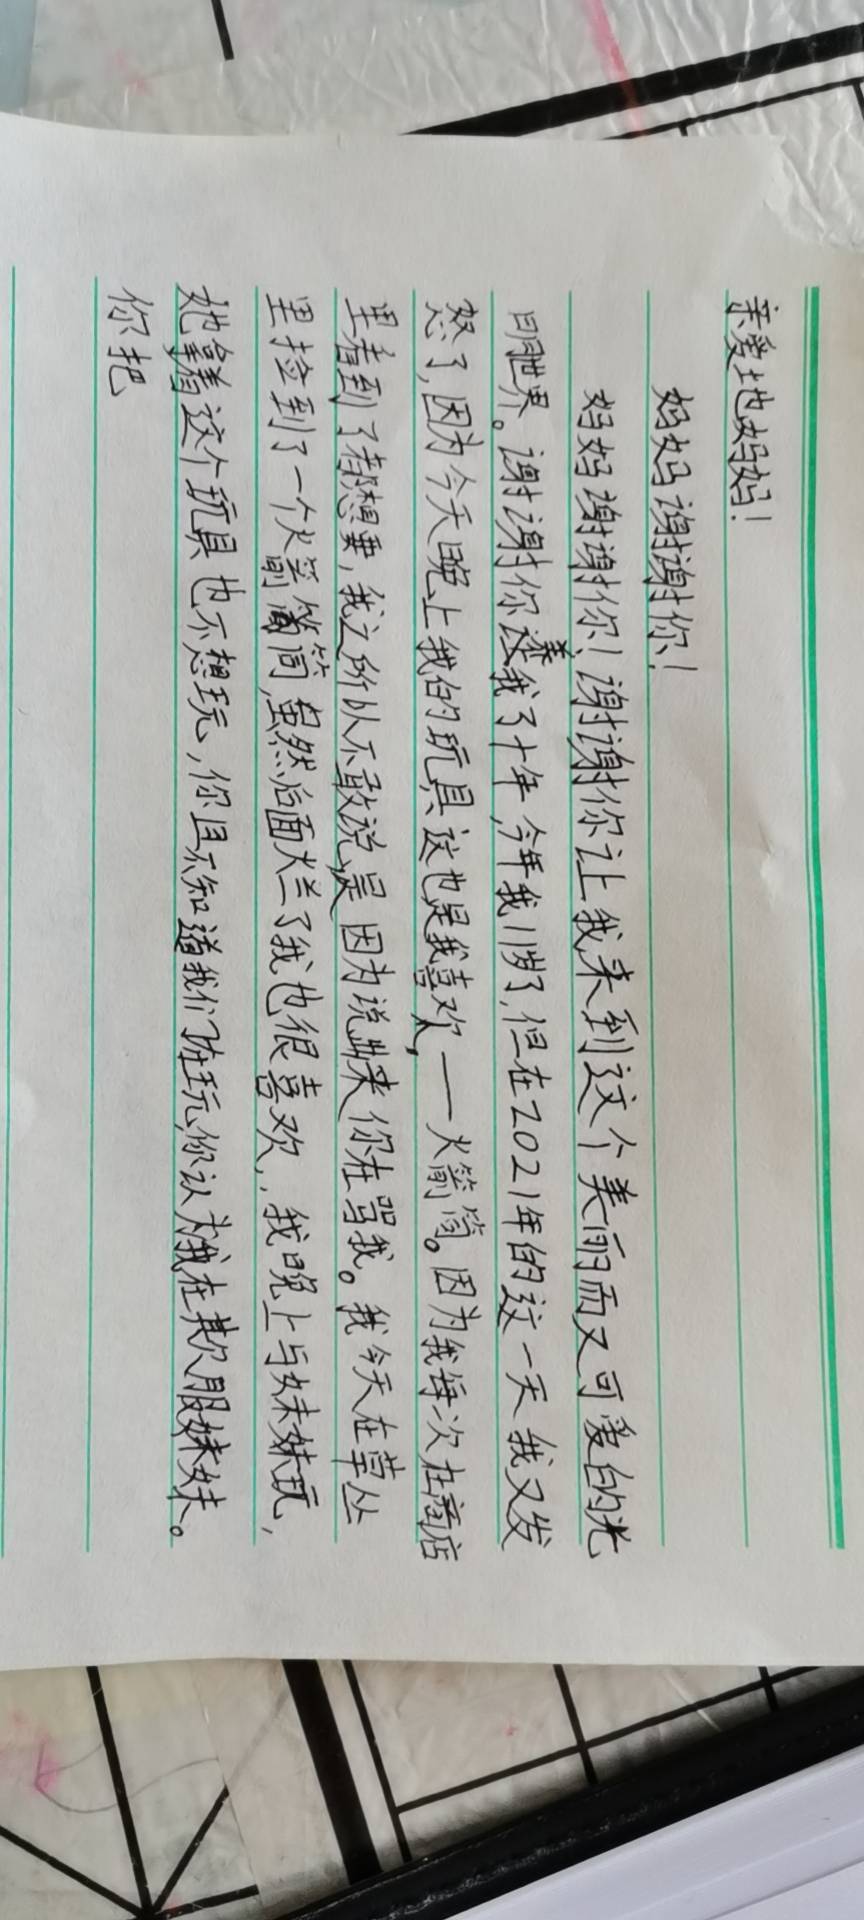 亲爱地妈妈！
妈妈谢谢你！
妈妈谢谢你！谢谢你让我来到这个美丽而又可爱的光
明世界。谢谢你养我了十年，今年我11岁了，但在2021年的这一天我又发
怒了，因为今天晚上我的玩具这也是我喜欢，一火箭筒。因为我每次在商店
里看到了都想要，我之所以不敢说，是因为说出来你在骂我。我今天在草丛
里捡到了一个火箭筒，虽然后面烂了我也很喜欢，我晚上与妹妹玩，
她拿着这个玩具也不想玩，你且不知道我们在玩，你认为我在欺服妹妹。
你把